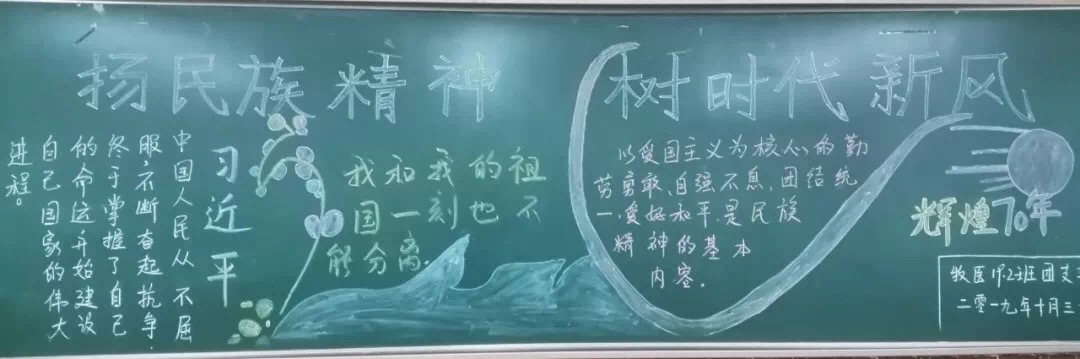 扬民族精神 树时代新风
习近平
中国人民从不屈
服,不断奋起抗争,
终于掌握了自己
的命运,开始建设
自己国家的伟大
进程。
我和我的祖
国一刻也不
能分离.
以爱国主义为核心的勤
劳勇敢、自强不息、团结统
一、爱好和平.是民族
精神的基本
内容.
辉煌70年
牧医19.2班团支
二零一九年十月三